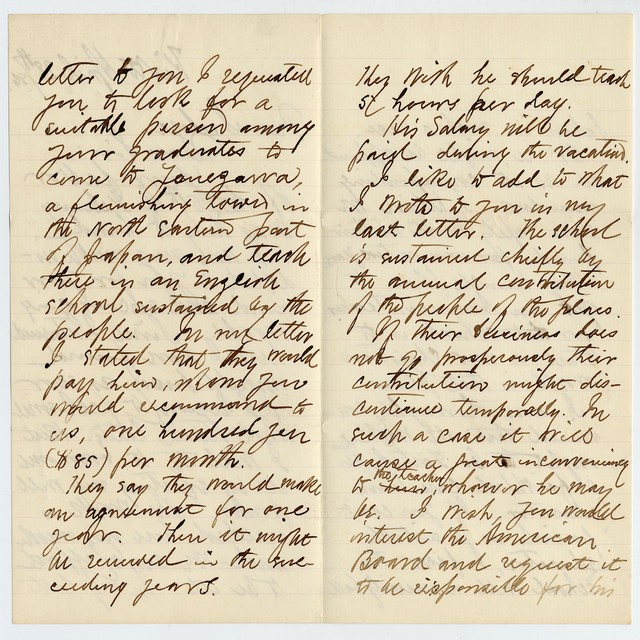 letter to you I requested
you to look for a
suitable person among
your graduates to
come to Yonezawa,
a flourishing town in
the North Eastern part
of Japan, and teach
there in an English
school sustained by the
people. In my letter
I stated that they would
pay him, whom you
would recommend to
us, one hundred yen
($85) per month.
They say they would make
an agreement for one
year. Then it might
be renewed in the suc-
ceeding years.
They wish he should teach
5 hours per day.
His Salary will be
paid during the vacation.
I like to add to what
I wrote to you in my
last letter. The school
is sustained chiefly by
the annual contribution
of the people of the place.
If their business does
not go prosperously their
contribution might dis-
continue temporally. In
such a case it will
cause a great inconveniency
to the teacher, whoever he may
be. I wish, you would
interest the American
Board and request it
to be responsible for his